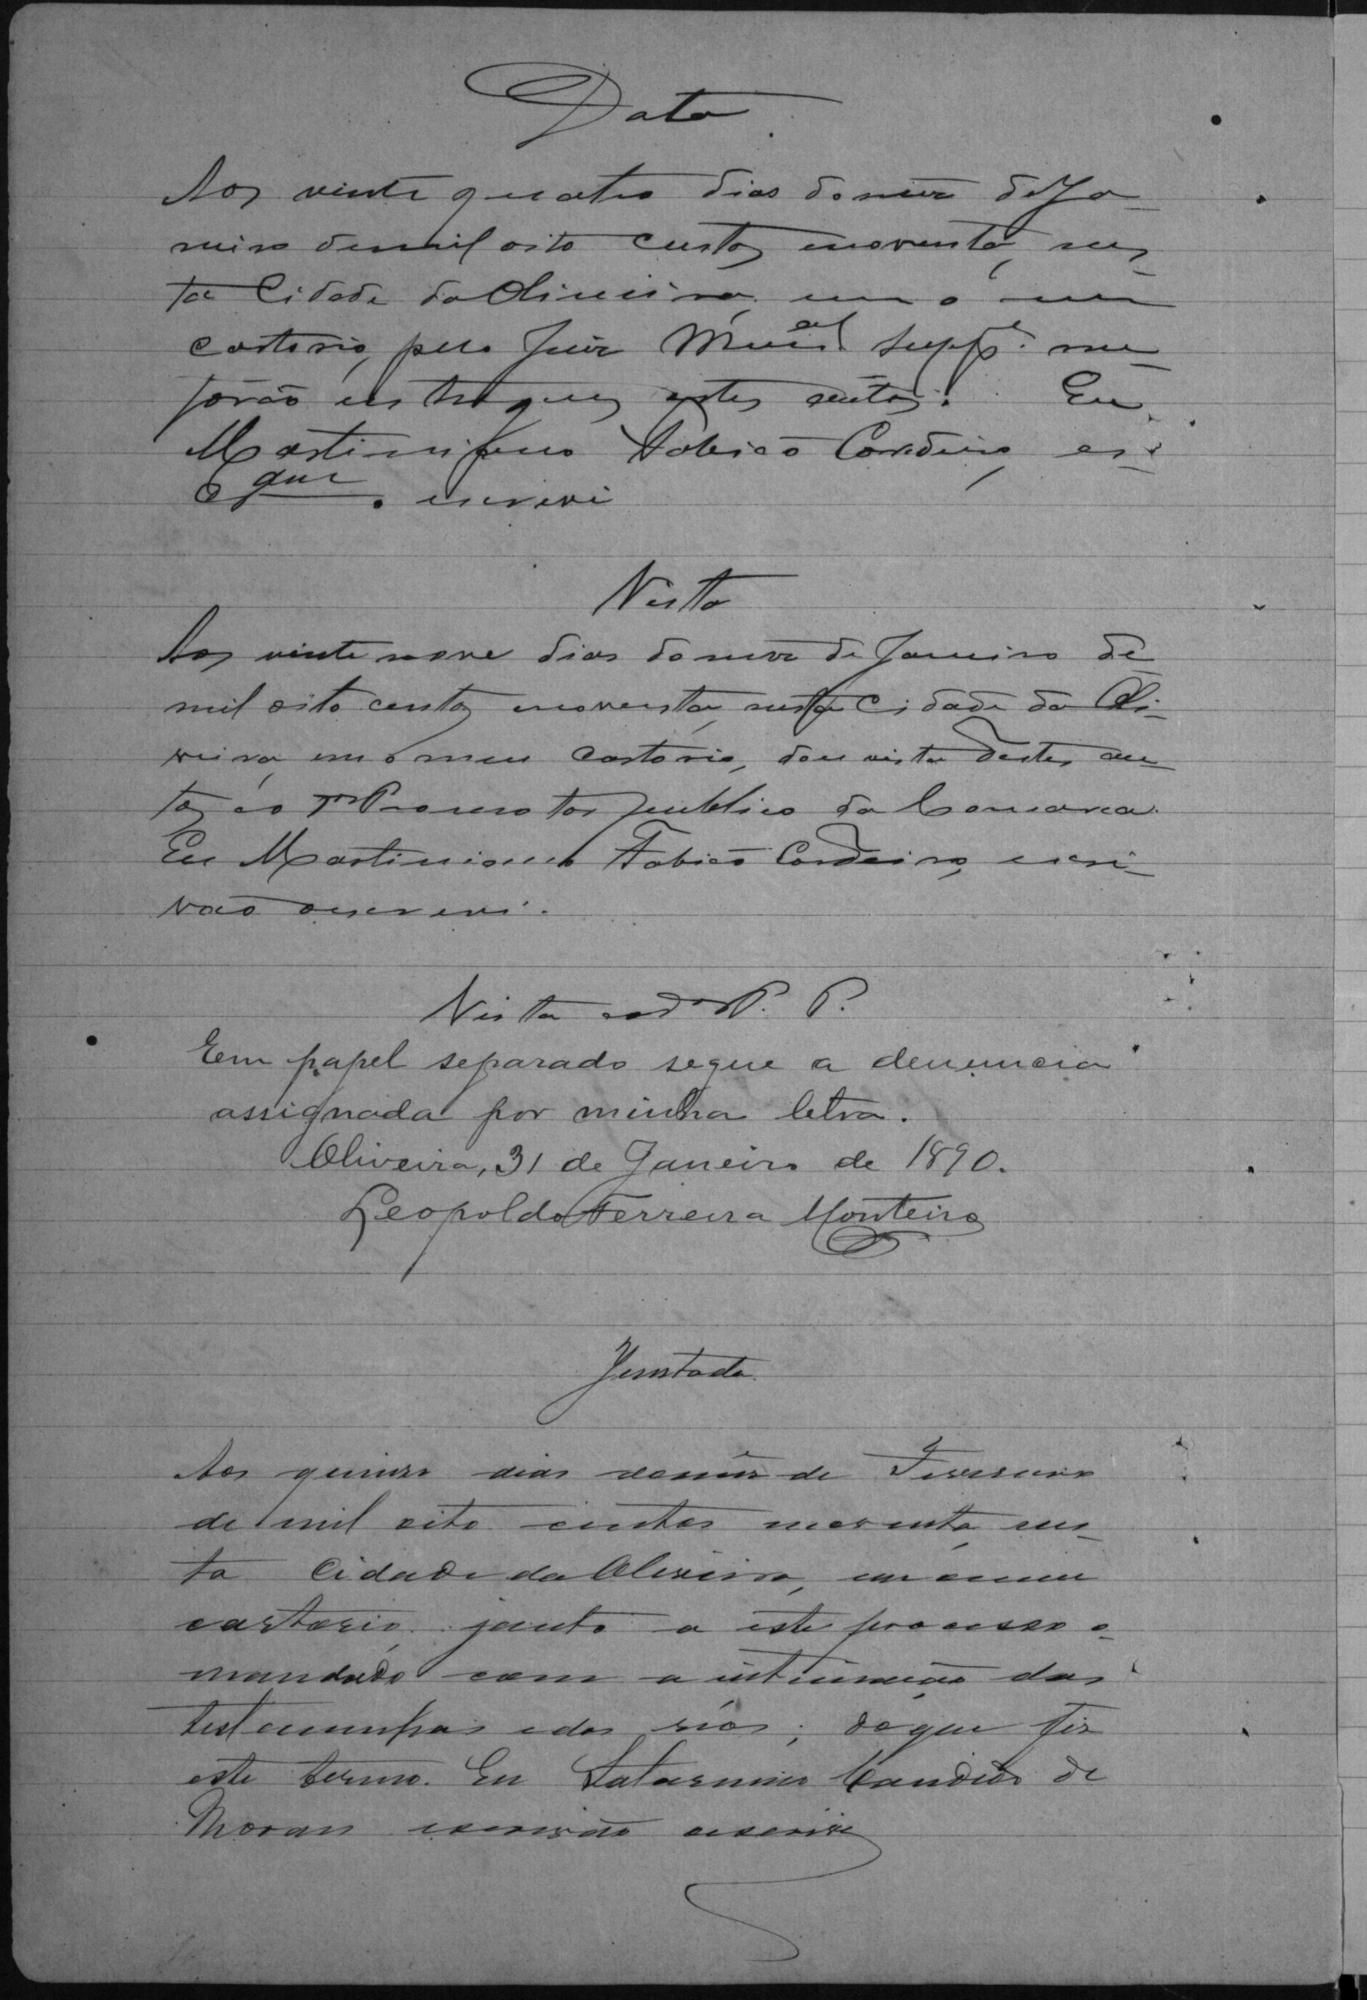 Data
Aos vinte quatro dias do mez de Ja-
neiro de mil oito centos noventa, nes-
ta Cidade da Oliveira, em o meu
cartorio, pelo Juiz Mun.al Supp.e me
forão entregues estes autos. Eu
Martiniano Fabião Cordeiro, es-
cam que escrevi
Vista
Aos vinte nove dias do mez de Janeiro de
mil oito centos noventa, nesta Cidade da Oli-
veira, em o meu cartorio, dou vista destes au-
tos ao Promotor publico da Comarca.
Eu Martiniano Fabião Cordeiro, escri-
vão o escrevi.
Vista ao Dr. P. P.
Em papel separado segue a denuncia
assignada por minha letra.
Oliveira, 31 de Janeiro de 1890.
Leopoldo Ferreira Monteiro
Juntada
Aos quinze dias do mez de Fevereiro
de mil oito centos noventa, nes-
ta Cidade da Oliveira, em o meu
cartorio, junto a este processo o
mandado com a intimação das
testemunhas e dos réos; do que fiz
este termo. Eu Saturnino Candido de
Moraes escrivão o escrivi